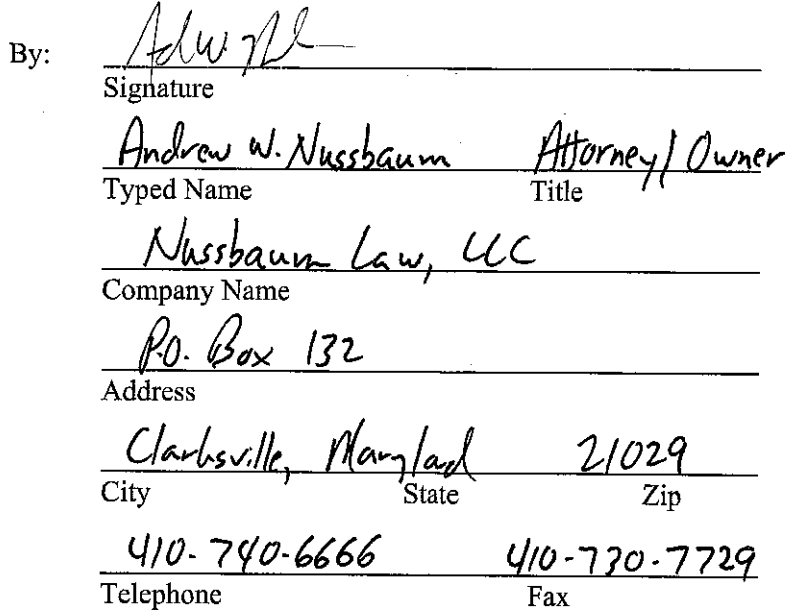 By:
Signature
Andrew W. Nussbaum Attorney/Owner
Typed Name Title
Nussbaum Law, LLC
Company Name
P.O. Box 132
Address
Clarksville, Maryland 21029
City State Zip
410-740-6666 410-730-7729
Telephone Fax